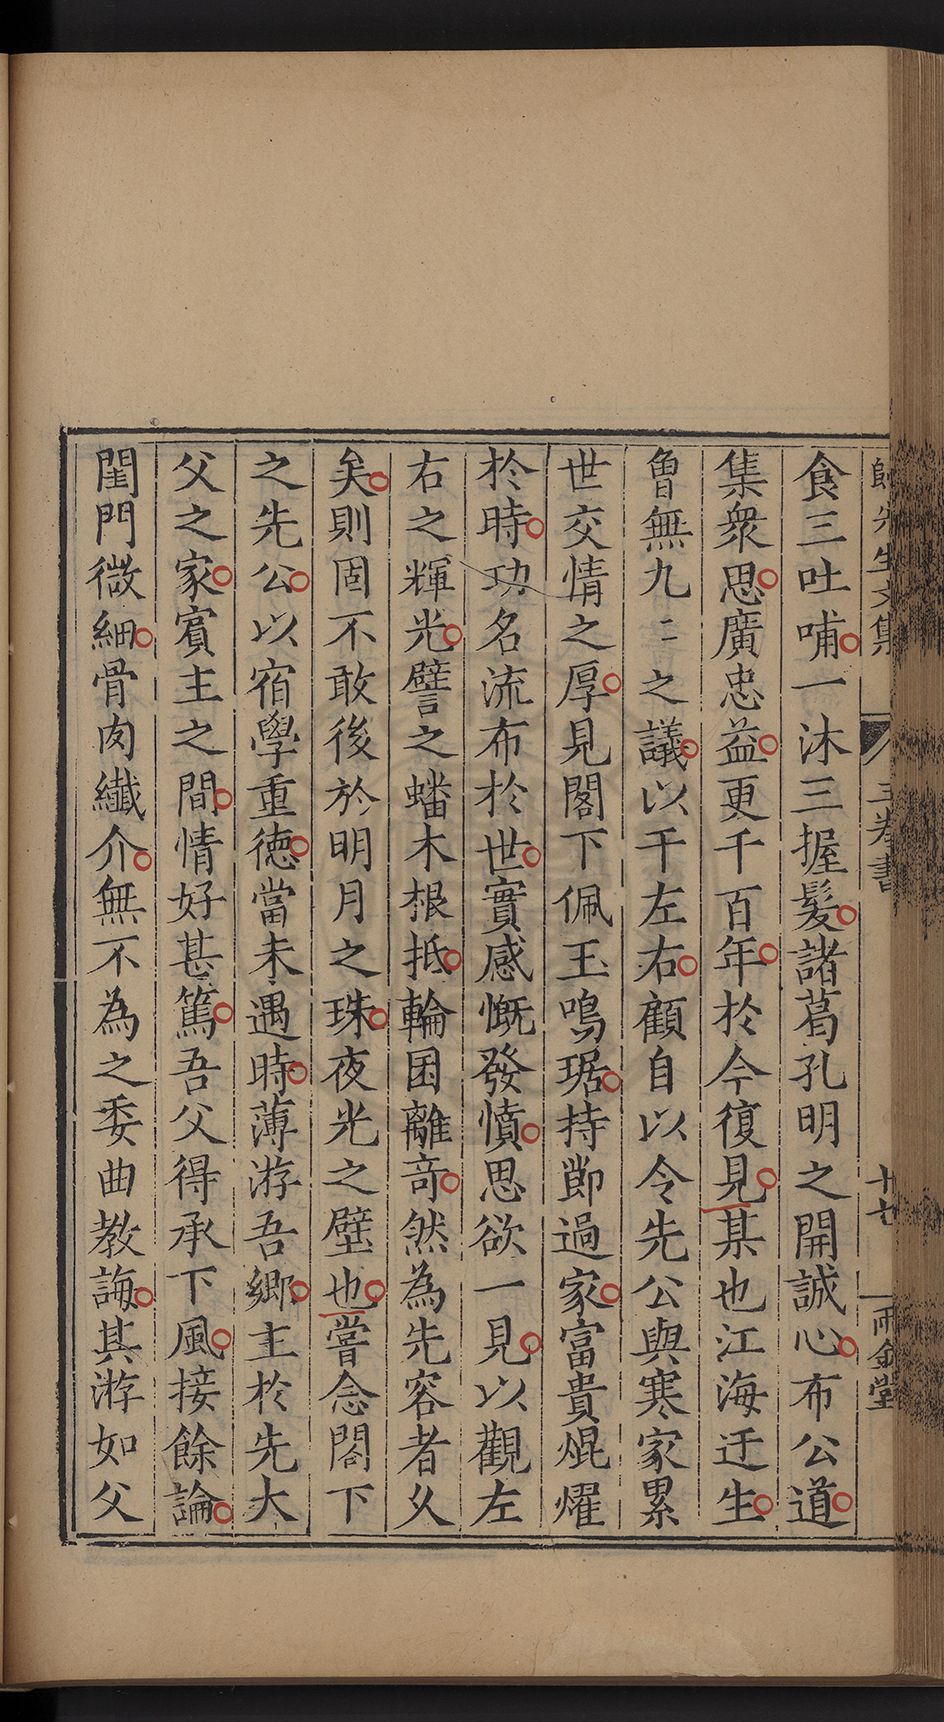 食三吐哺一沐三握髮諸葛孔明之開誠心布公道
集衆思廣忠益更千百年於今復見某也江海迂生
曾無九二之議以干左右顧自以令先公與寒家累
世交情之厚見閣下佩玉鳴琚持節過家富貴焜燿
於時功名流布於世實感慨發憤思欲一見以觀左
右之輝光譬之蟠木根抵輪囷離奇然為先容者久
矣則固不敢後於明月之珠夜光之璧也嘗念閣下
之先公以宿學重德當未遇時薄游吾鄉主於先大
父之家賓主之間情好甚篤吾父得承下風接餘論
閨門微細骨肉纖介無不為之委曲教誨其游如父
先生文集
三卷書
十七
兩金堂